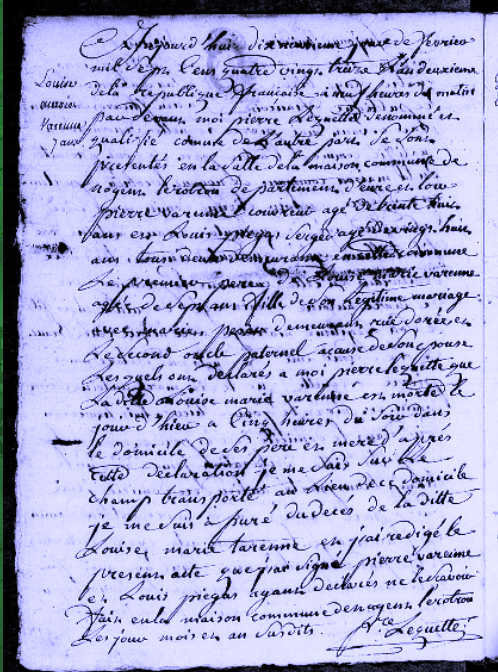 Aujourd'huy dix neuvieme jour de fevrier
mil sept cens quatre vingt treize l'an deuxieme
Louise
marie
Varenne
7 ans
de la republique francaise a neuf heures du matin
par devant moi pierre Lequette denommé et
qualifié comme de l'autre part se sont
presentés en la salle de la maison commune de
nogent le rotrou departement d'eure et loir
pierre varenne agé de trente huit
ans et Louis piegas serger agé de vingt huit
ans tous deux demeurans en cette commune
Le premier pere de Louise marie varenne
agée de sept ans fille de son legitime mariage
avec marie demeurant rue dorée et
Le second oncle paternel a cause de son epouse
Lesquels ont declarés a moi pierre lequette que
La ditte Louise marie varenne est morte le
jour d'hier a cinq heures du soir dans
le domicile de ses pere et mere d'aprés
cette déclaration je me suis sur le
champ transporté au lieu de ce domicile
je me suis assuré du decés de la ditte
Louise marie varenne et j'ai redigé le
present acte que j'ai signé pierre varenne
et Louis piegas ayant declarés ne le savoir
fait en la maison commune de nogent le rotrou
Les jour mois et an susdits.
Pre Lequette